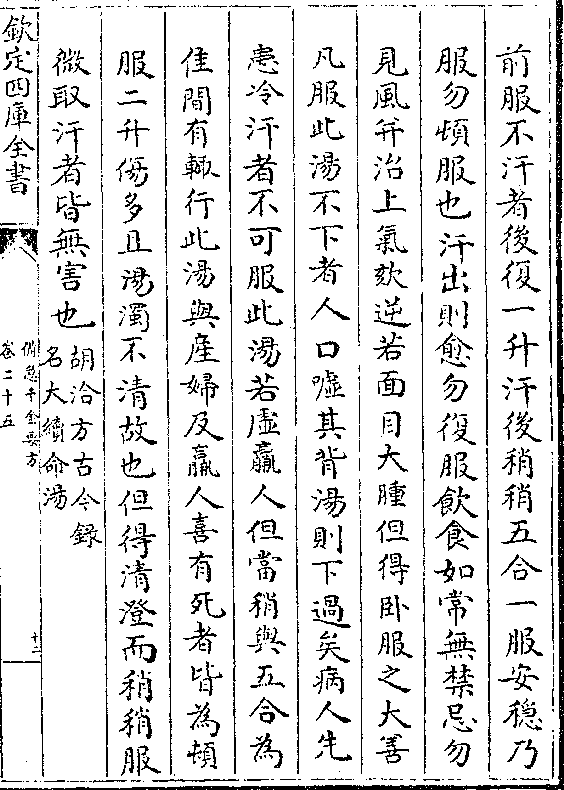 前服不汗者後復一升汗後稍稍五合一服安穩乃
服勿頓服也汗出則愈勿復服飲食如常無禁忌勿
見風并治上氣欬逆若面目大腫但得卧服之大善
凡服此湯不下者人口噓其背湯則下過矣病人先
患冷汗者不可服此湯若虛羸人但當稍與五合為
佳間有輙行此湯與産婦及羸人喜有死者皆為頓
服二升傷多且湯濁不清故也但得清澄而稍稍服
微取汗者皆無害也胡洽方古今録
名大續命湯
欽定四庫全書
備急千金要方
卷二十五
十二